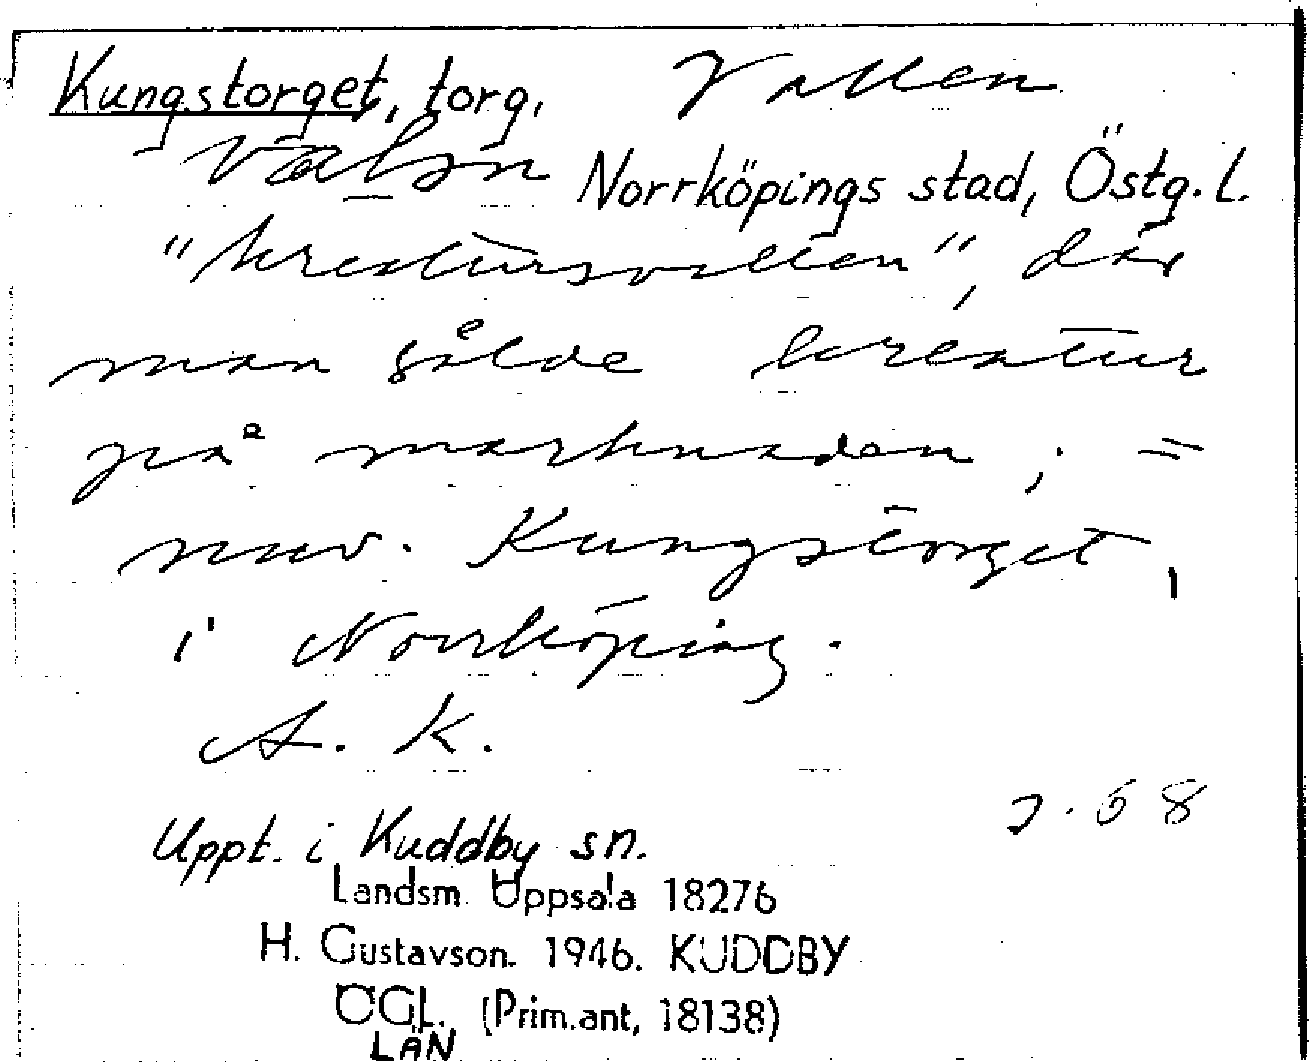 Kungstorget, torg. Vallen
Norrköpings stad, Östg. L.
"kreatursvallen", där
man sålde kreatur
på marknaden; =
nuv. Kungstorget,
i Norrköping.
A. K.
Uppt. i Kuddby sn.
Landsm. Uppsala 18276
H. Gustavson. 1946. KUDDBY
ÖGL. (Prim.ant, 18138)
LÄN